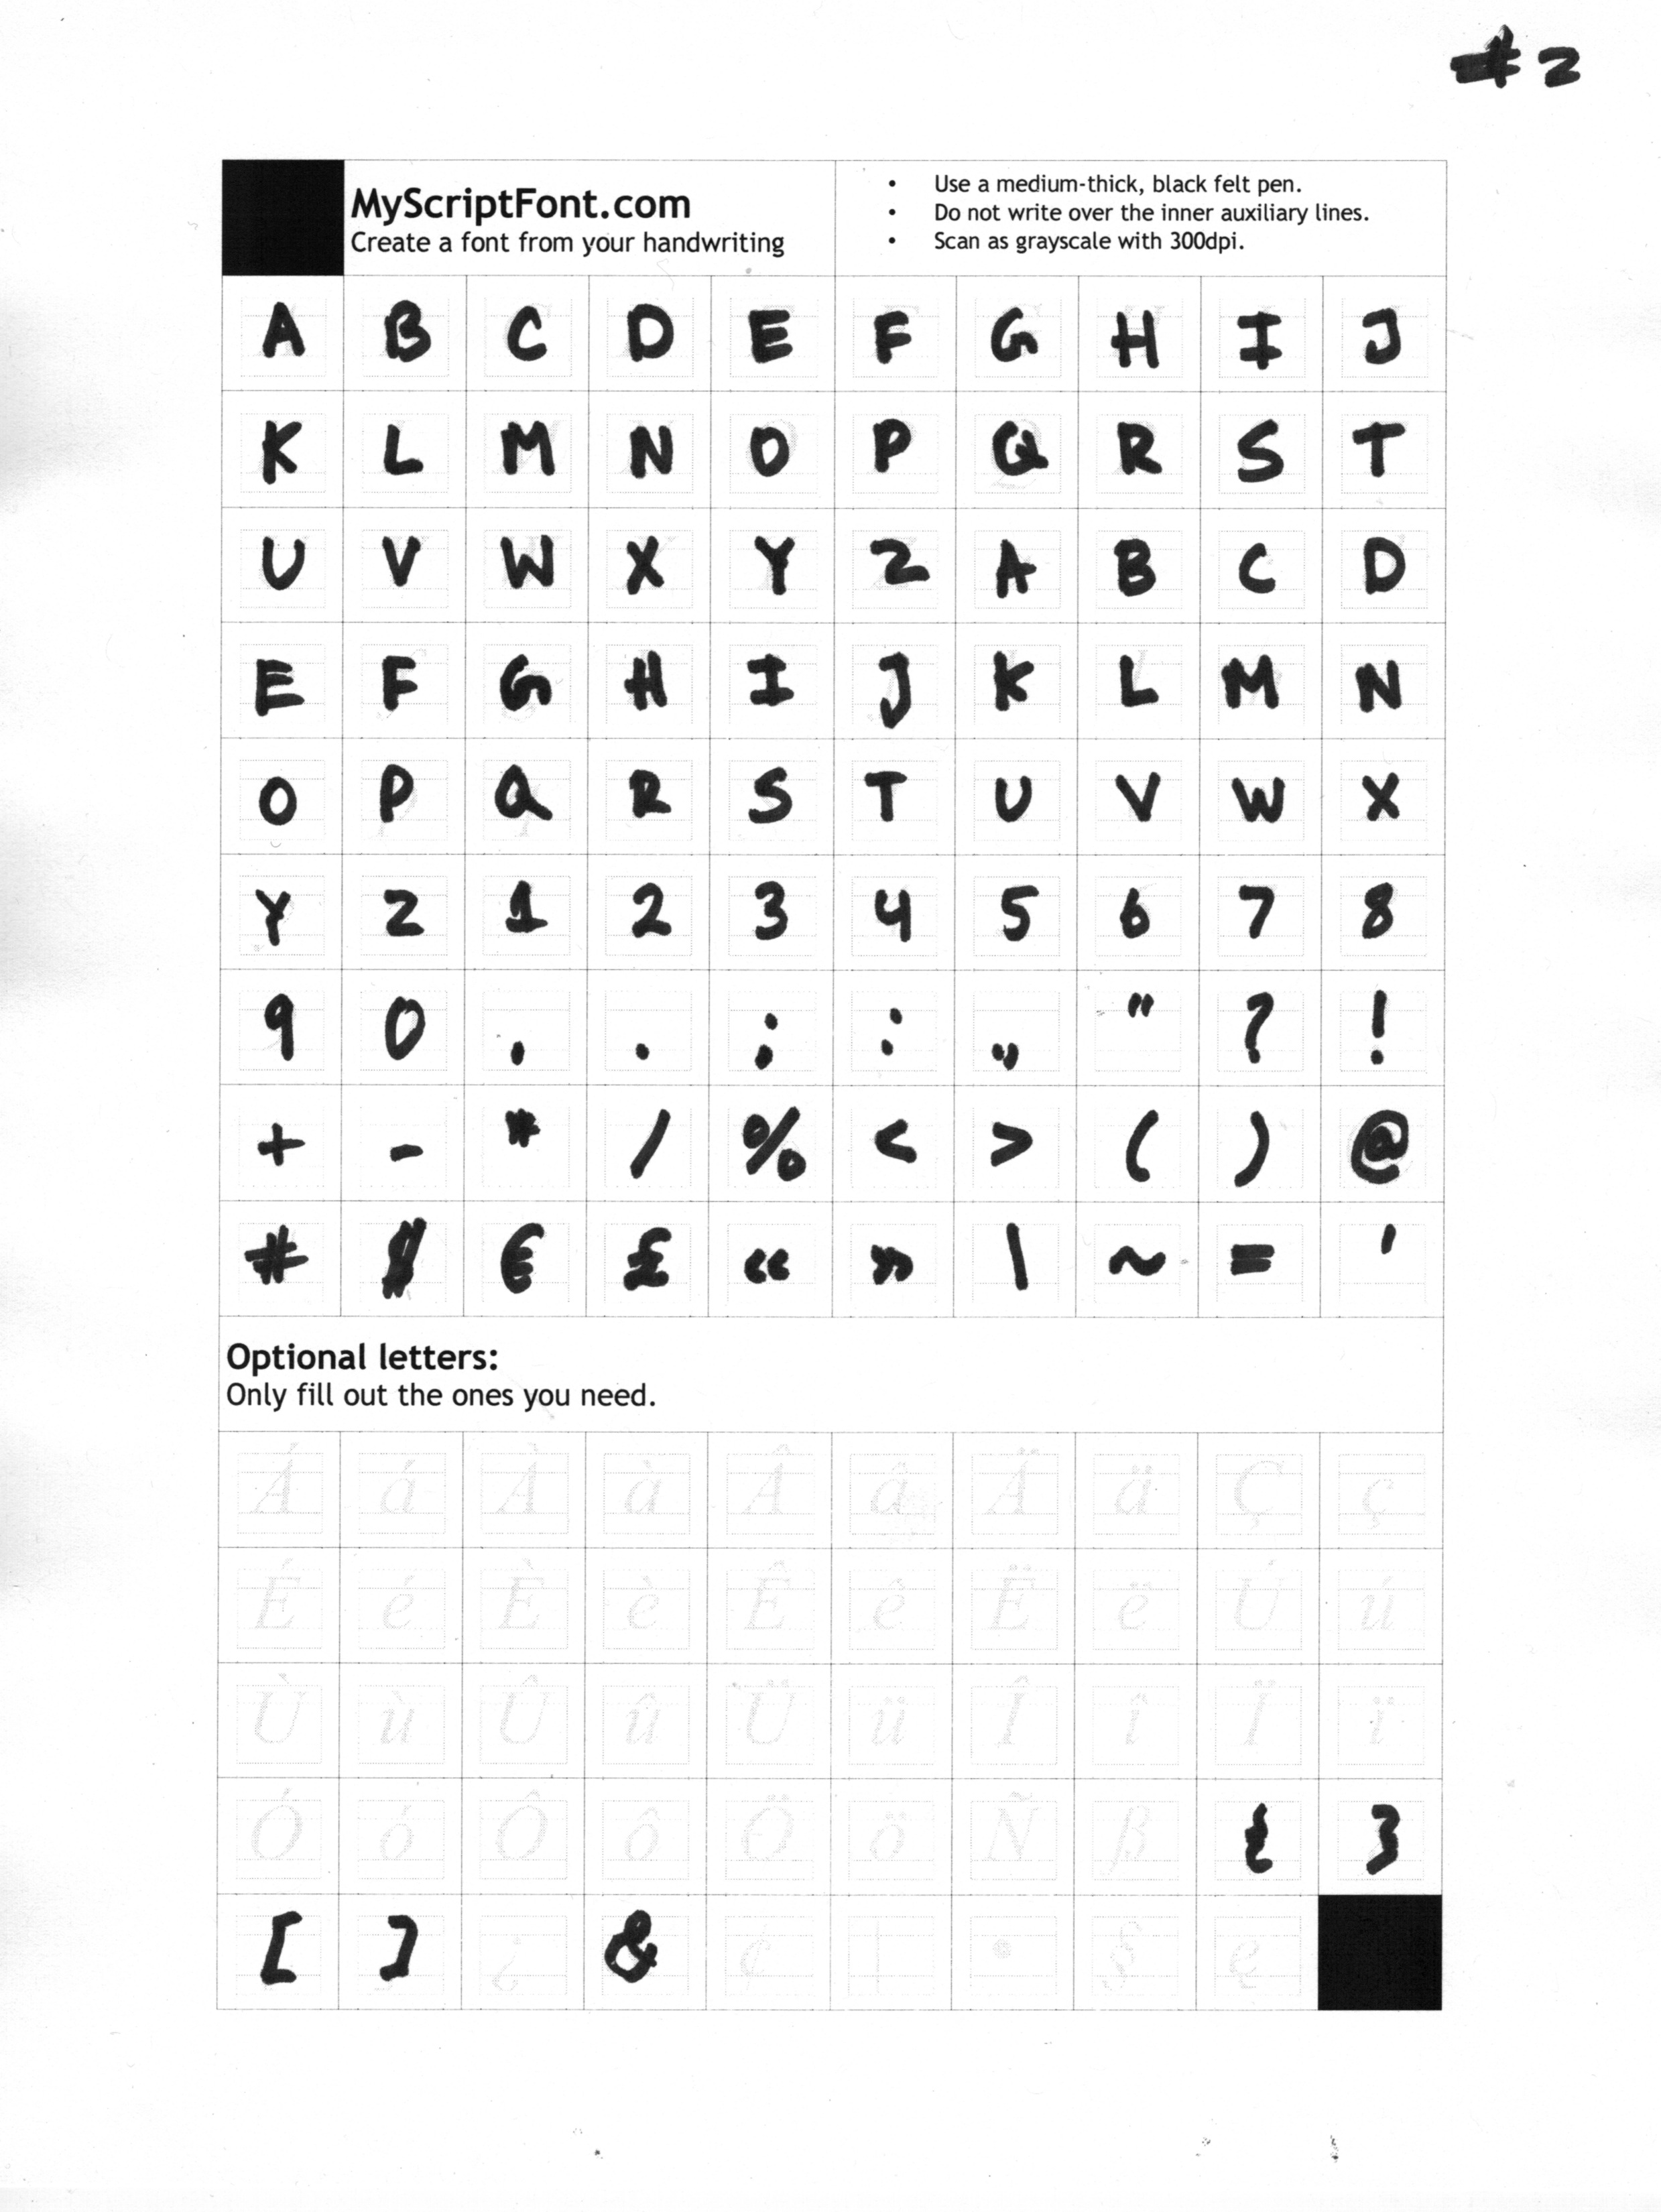 #2
MyScriptFont.com
Create a font from your handwriting
• Use a medium-thick, black felt pen.
• Do not write over the inner auxiliary lines.
• Scan as grayscale with 300dpi.
A B C D E F G H I J
K L M N O P Q R S T
U V W X Y Z A B C D
E F G H I J K L M N
O P Q R S T U V W X
Y Z 1 2 3 4 5 6 7 8
9 0 , . ; : „ " ? !
+ - * / % < > ( ) @
# $ € £ « » | ~ = '
Optional letters:
Only fill out the ones you need.
Á á À à Â â Ä ä Ç ç
É é È è Ê ê Ë ë Ú ú
Ù ù Û û Ü ü Î î Ï ï
Ó ó Ô ô Ö ö Ñ ß { }
[ ] ¿ & ¢ | • § ę